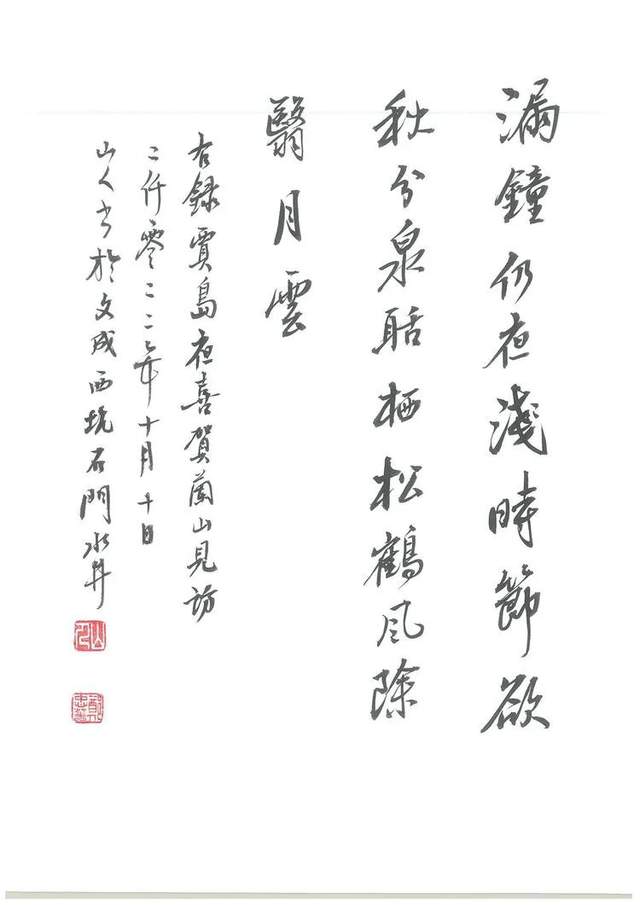 漏鐘仍夜淺時節欲
秋分泉聒栖松鶴風除
翳月雲
右録賈島夜喜賀蘭山見訪
二仟零二二年十月十日
山人书於文成西坑石門水井